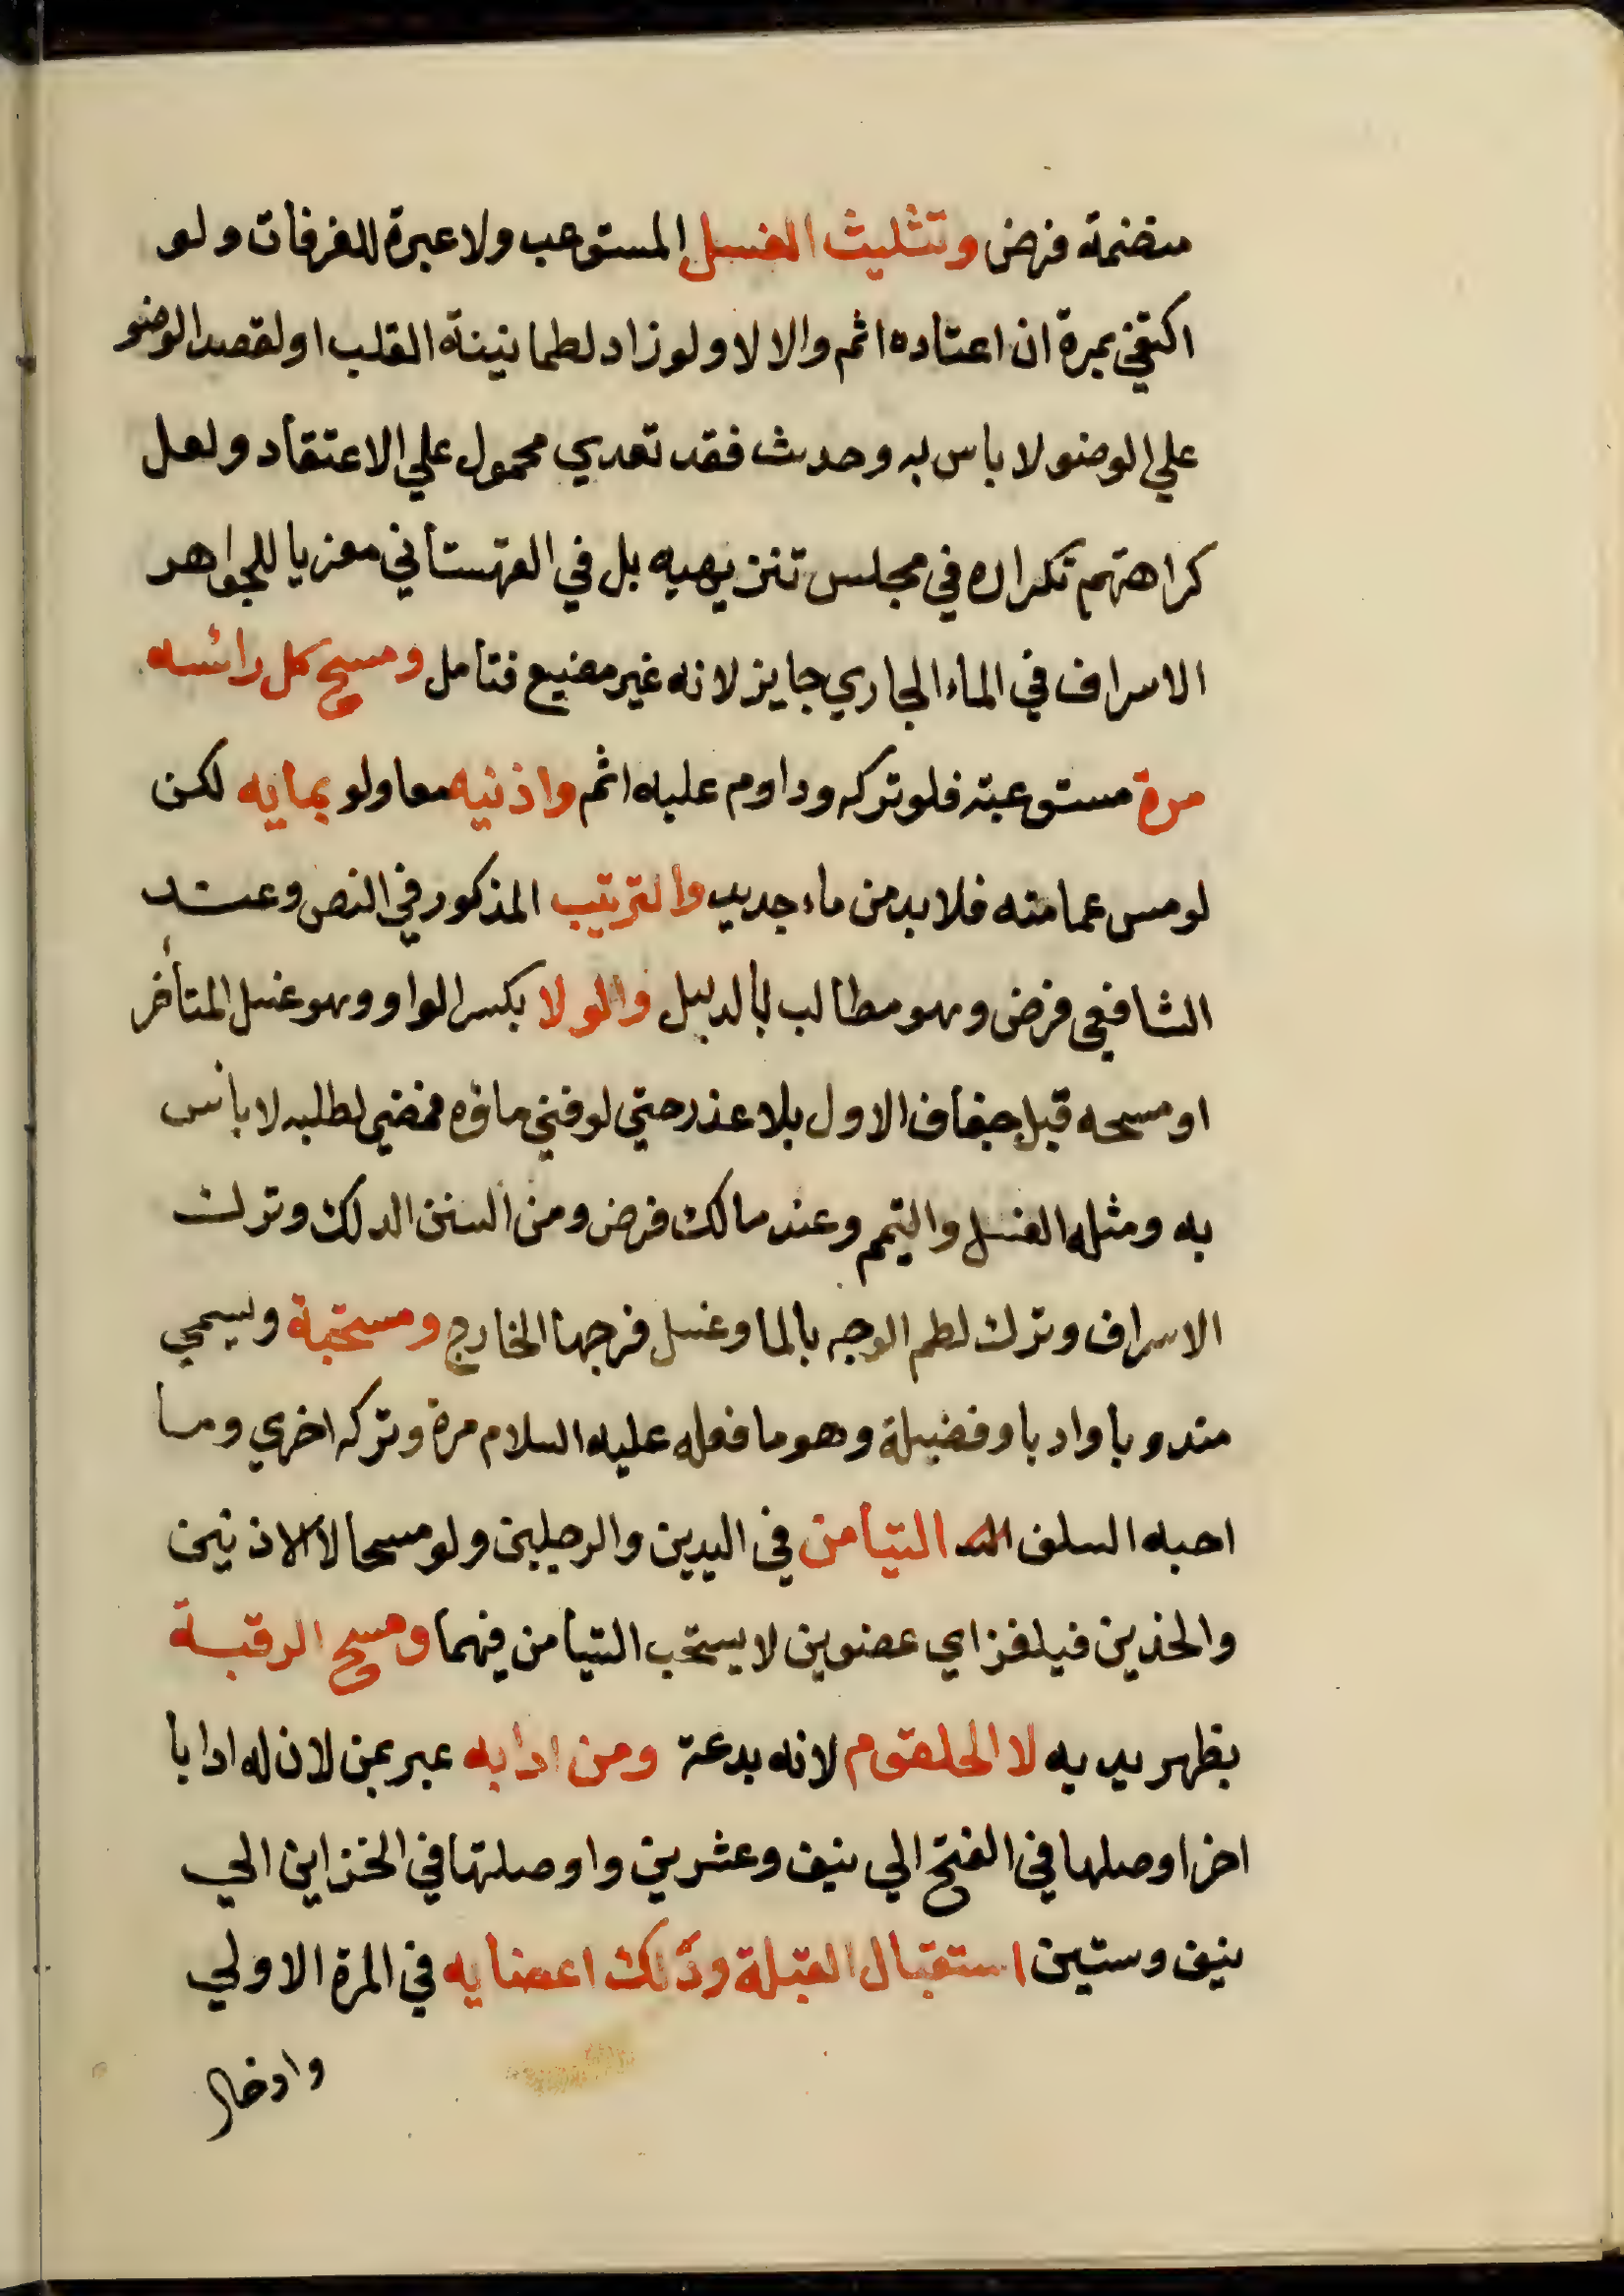 منضمة فرض وتثليث الغسل المستوعب ولا عبرة للغرفات ولو
اكتفي بمرة ان اعتاده اثم والا لا ولو زاد لطمانينة القلب او لقصد الوضو
علي الوضو لا باس به وحدث فقد تعدي محمول علي الاعتقاد ولعل
كراهتهم تكراره في مجلس تنزيهيه بل في القهستاني معزيا للجواهر
الاسراف في الماء الجاري جايز لانه غير مضيع فتامل ومسح كل رائسه
مرة مستوعبة فلو تركه وداوم عليه اثم واذنيه معا ولو بمايه لكن
لو مس عمامته فلا بد من ماء جديد والترتيب المذكور في النص وعند
الشافعي فرض وهو مطالب بالدليل والولا بكسر الواو وهو غسل المتأخر
او مسحه قبل جفاف الاول بلا عذر حتي لو فني ماؤه فمضي لطلبه لا بائس
به ومثله الغسل والتيمم وعند مالك فرض ومن السنن الدلك وترك
الاسراف وترك لطم الوجه بالما وغسل فرجها الخارج ومستحبة ويسمي
مندوبا وادبا وفضيلة وهو ما فعله عليه السلام مرة وتركه اخري وما
احبه السلف التيامن في اليدين والرجلين ولو مسحا لا الاذنين
والخدين فيلغز اي عضوين لا يستحب التيامن فيهما ومسح الرقبة
بظهر يديه لا الحلقوم لانه بدعة ومن ادابه عبر بمن لان له ادابا
اخر اوصلها في الفتح الي نيف وعشرين واوصلتها في الخزاين الي
نيف وستين استقبال القبلة ودلك اعضايه في المرة الاولي
وادخال